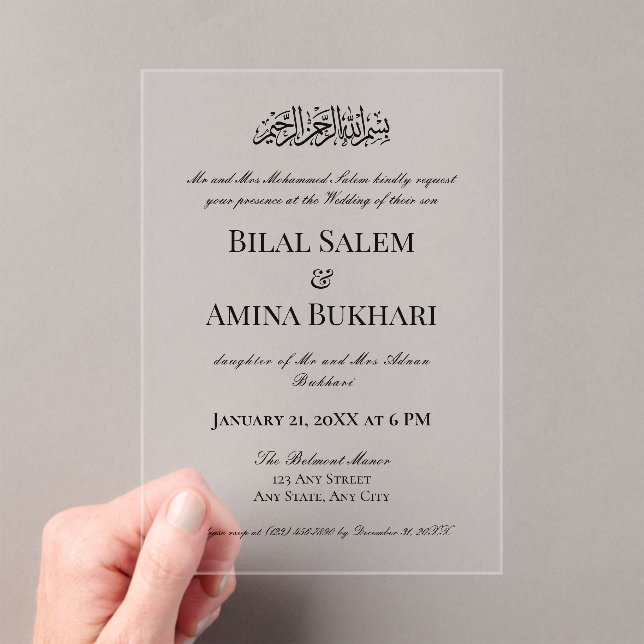 بسم الله الرحمن الرحيم
Mr and Mrs Mohammed Salem kindly request
your presence at the Wedding of their son
Bilal Salem
&
Amina Bukhari
daughter of Mr and Mrs Adnan
Bukhari
January 21, 20XX at 6 PM
The Belmont Manor
123 Any Street
Any State, Any City
rsvp at (123) 456-7890 by December 31, 20XX